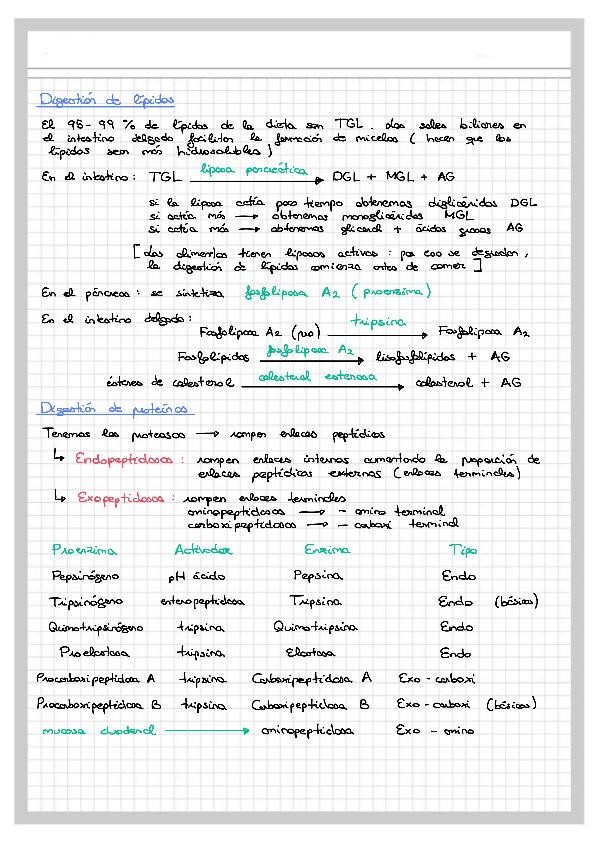 Digestión de lípidos
El 98-99 % de lípidos de la dieta son TGL. Las sales biliares en
el intestino delgado facilitan la formación de micelas ( hacen que los
lípidos sean más hidrosolubles )
En el intestino : TGL lipasa pancreática → DGL + MGL + AG
si la lipasa actúa poco tiempo obtenemos diglicéridos DGL
si actúa más → obtenemos monoglicéridos MGL
si actúa más → obtenemos glicerol + ácidos grasos AG
[ Los alimentos tienen lipasas activas : por eso se degradan ,
la digestión de lípidos comienza antes de comer ]
En el páncreas : se sintetiza fosfolipasa A2 ( proenzima )
En el intestino delgado :
Fosfolipasa A2 (pro) tripsina → Fosfolipasa A2
Fosfolípidos fosfolipasa A2 → lisofosfolípidos + AG
ésteres de colesterol colesterol esterasa → colesterol + AG
Digestión de proteínas
Tenemos las proteasas → rompen enlaces peptídicos
↳ Endopeptidasas : rompen enlaces internos aumentando la proporción de
enlaces peptídicos externos ( enlaces terminales )
↳ Exopeptidasas : rompen enlaces terminales
aminopeptidasas → - amino terminal
carboxipeptidasas → - carboxi terminal
Proenzima Activador Enzima Tipo
Pepsinógeno pH ácido Pepsina Endo
Tripsinógeno enteropeptidasa Tripsina Endo (básicos)
Quimotripsinógeno tripsina Quimotripsina Endo
Proelastasa tripsina Elastasa Endo
Procarboxipeptidasa A tripsina Carboxipeptidasa A Exo - carboxi
Procarboxipeptidasa B tripsina Carboxipeptidasa B Exo - carboxi (básicos)
mucosa duodenal → aminopeptidasa Exo - amino